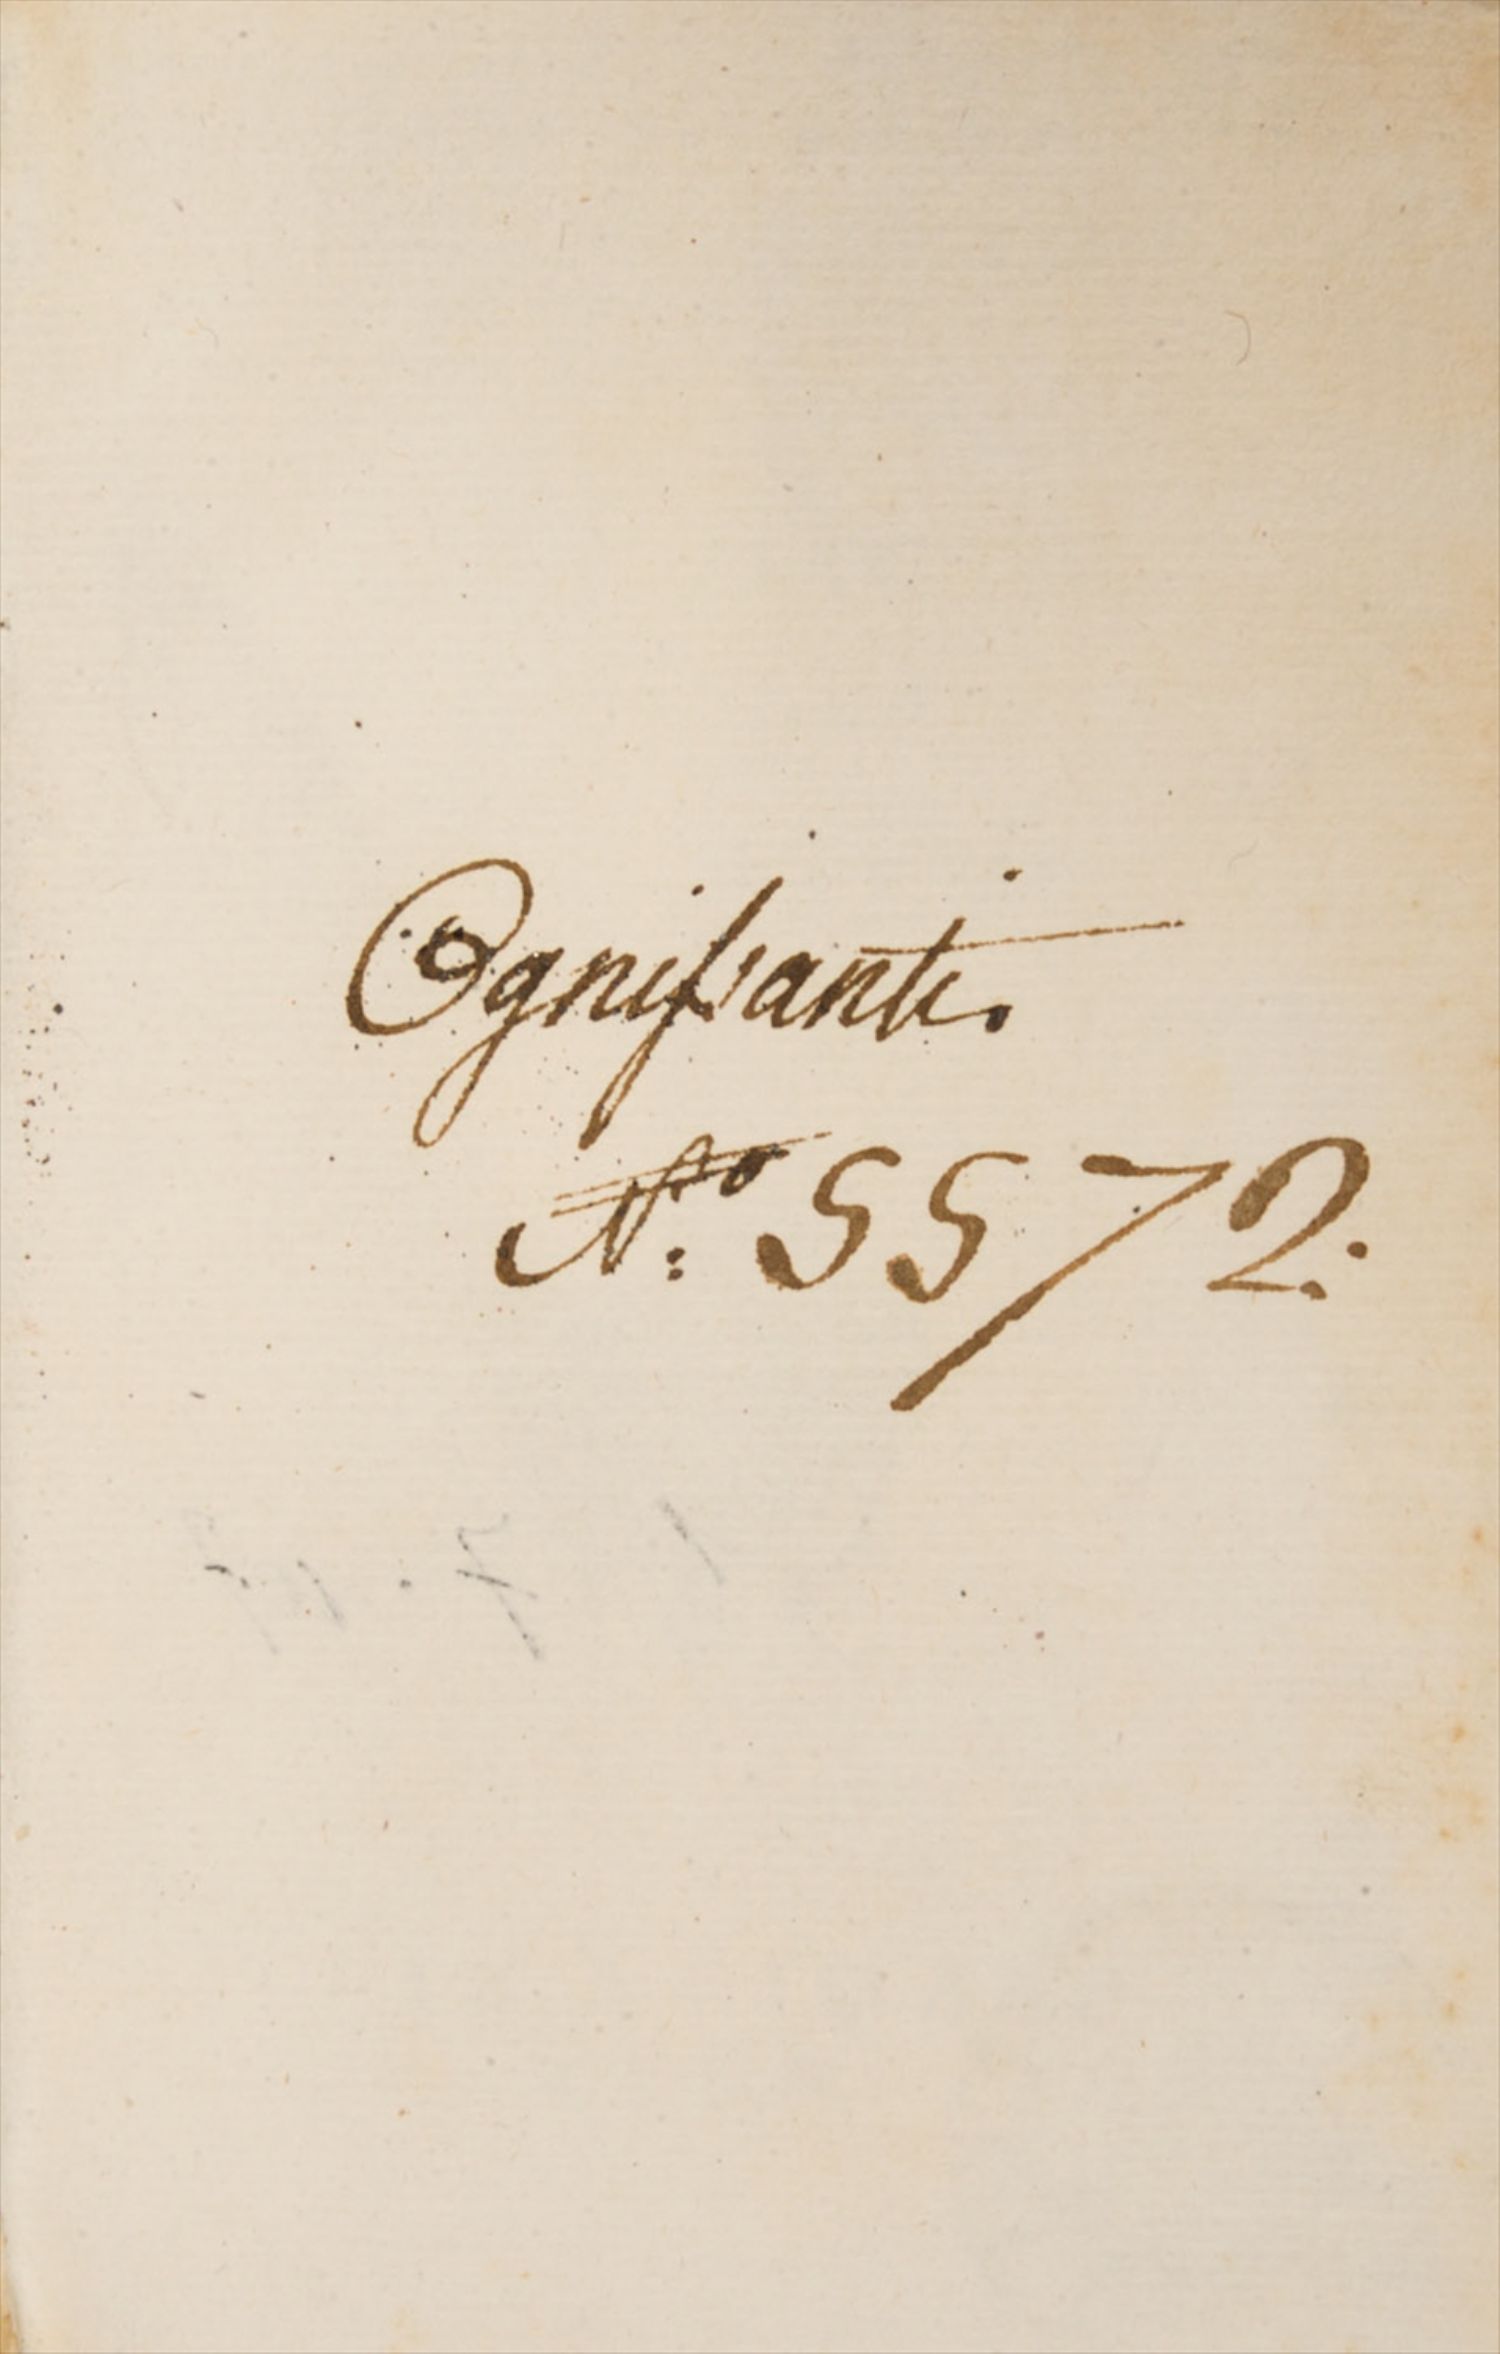 Ognissanti.
Nº: 5572.